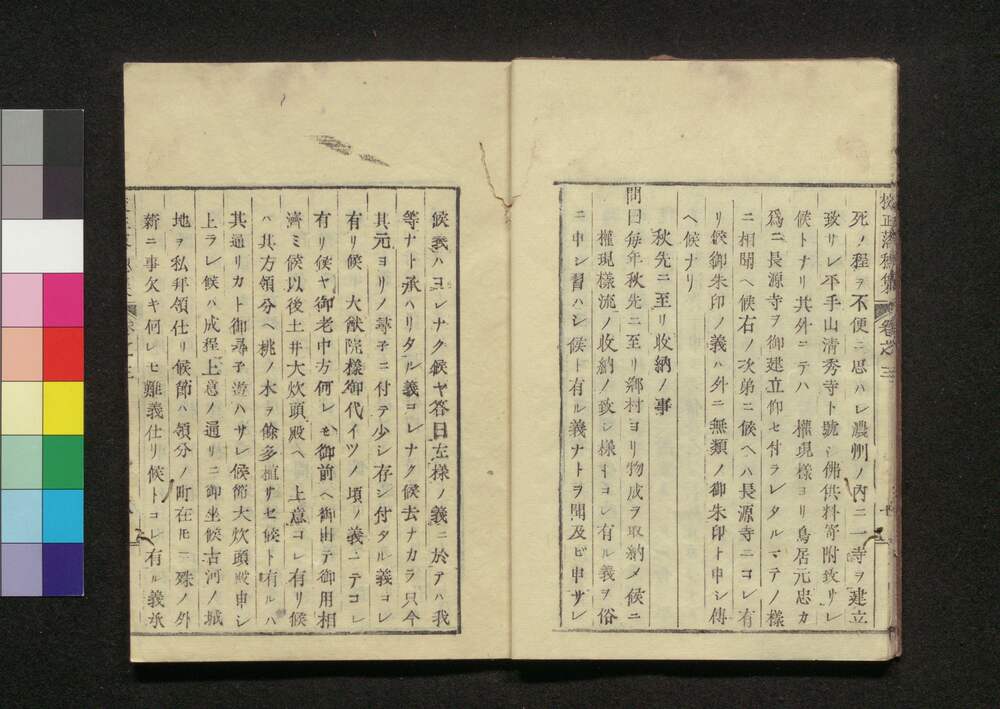 校正落穂集 卷之三
死ノ程ヲ不便ニ思ハレ濃州ノ内ニ一寺ヲ建立
致サレ平手山清秀寺ト號シ佛供料寄附致サレ
候トナリ其外ニテハ 權現様ヨリ鳥居元忠カ
爲ニ長源寺ヲ御建立仰セ付ラレタルマテノ様
ニ相聞ヘ候右ノ次第ニ候ヘハ長源寺ニコレ有
リ候御朱印ノ義ハ外ニ無類ノ御朱印ト申シ傳
ヘ候ナリ
秋先ニ至リ收納ノ事
問曰毎年秋先ニ至リ鄕村ヨリ物成ヲ取納メ候ニ
權現様流ノ收納ノ致シ様トコレ有ル義ヲ俗
ニ申シ習ハシ候ト有ル義ナトヲ聞及ビ申サレ
候義ハコレナク候ヤ答曰左様ノ義ニ於アハ我
等ナト承ハリタル義コレナク候去ナカラ只今
其元ヨリノ尋子ニ付テ少シ存シ付タル義コレ
有リ候 大猷院様御代イツノ頃ノ義ニテコレ
有リ候ヤ御老中方何レモ御前ヘ御出テ御用相
濟ミ候以後土井大炊頭殿ヘ 上意コレ有リ候
ハ其方領分ヘ桃ノ木ヲ餘多植サセ候ト有ルハ
其通リカト御尋子遊ハサレ候節大炊頭殿申シ
上ラレ候ハ成程上意ノ通リニ御坐候古河ノ城
地ヲ私拜領仕リ候節ハ領分ノ町在𪜈ニ殊ノ外
薪ニ事欠キ何レモ難義仕リ候トコレ有ル義承